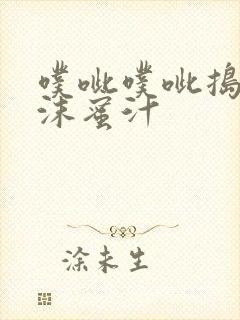 噗呲噗呲捣
沫蜜汁
涂未生